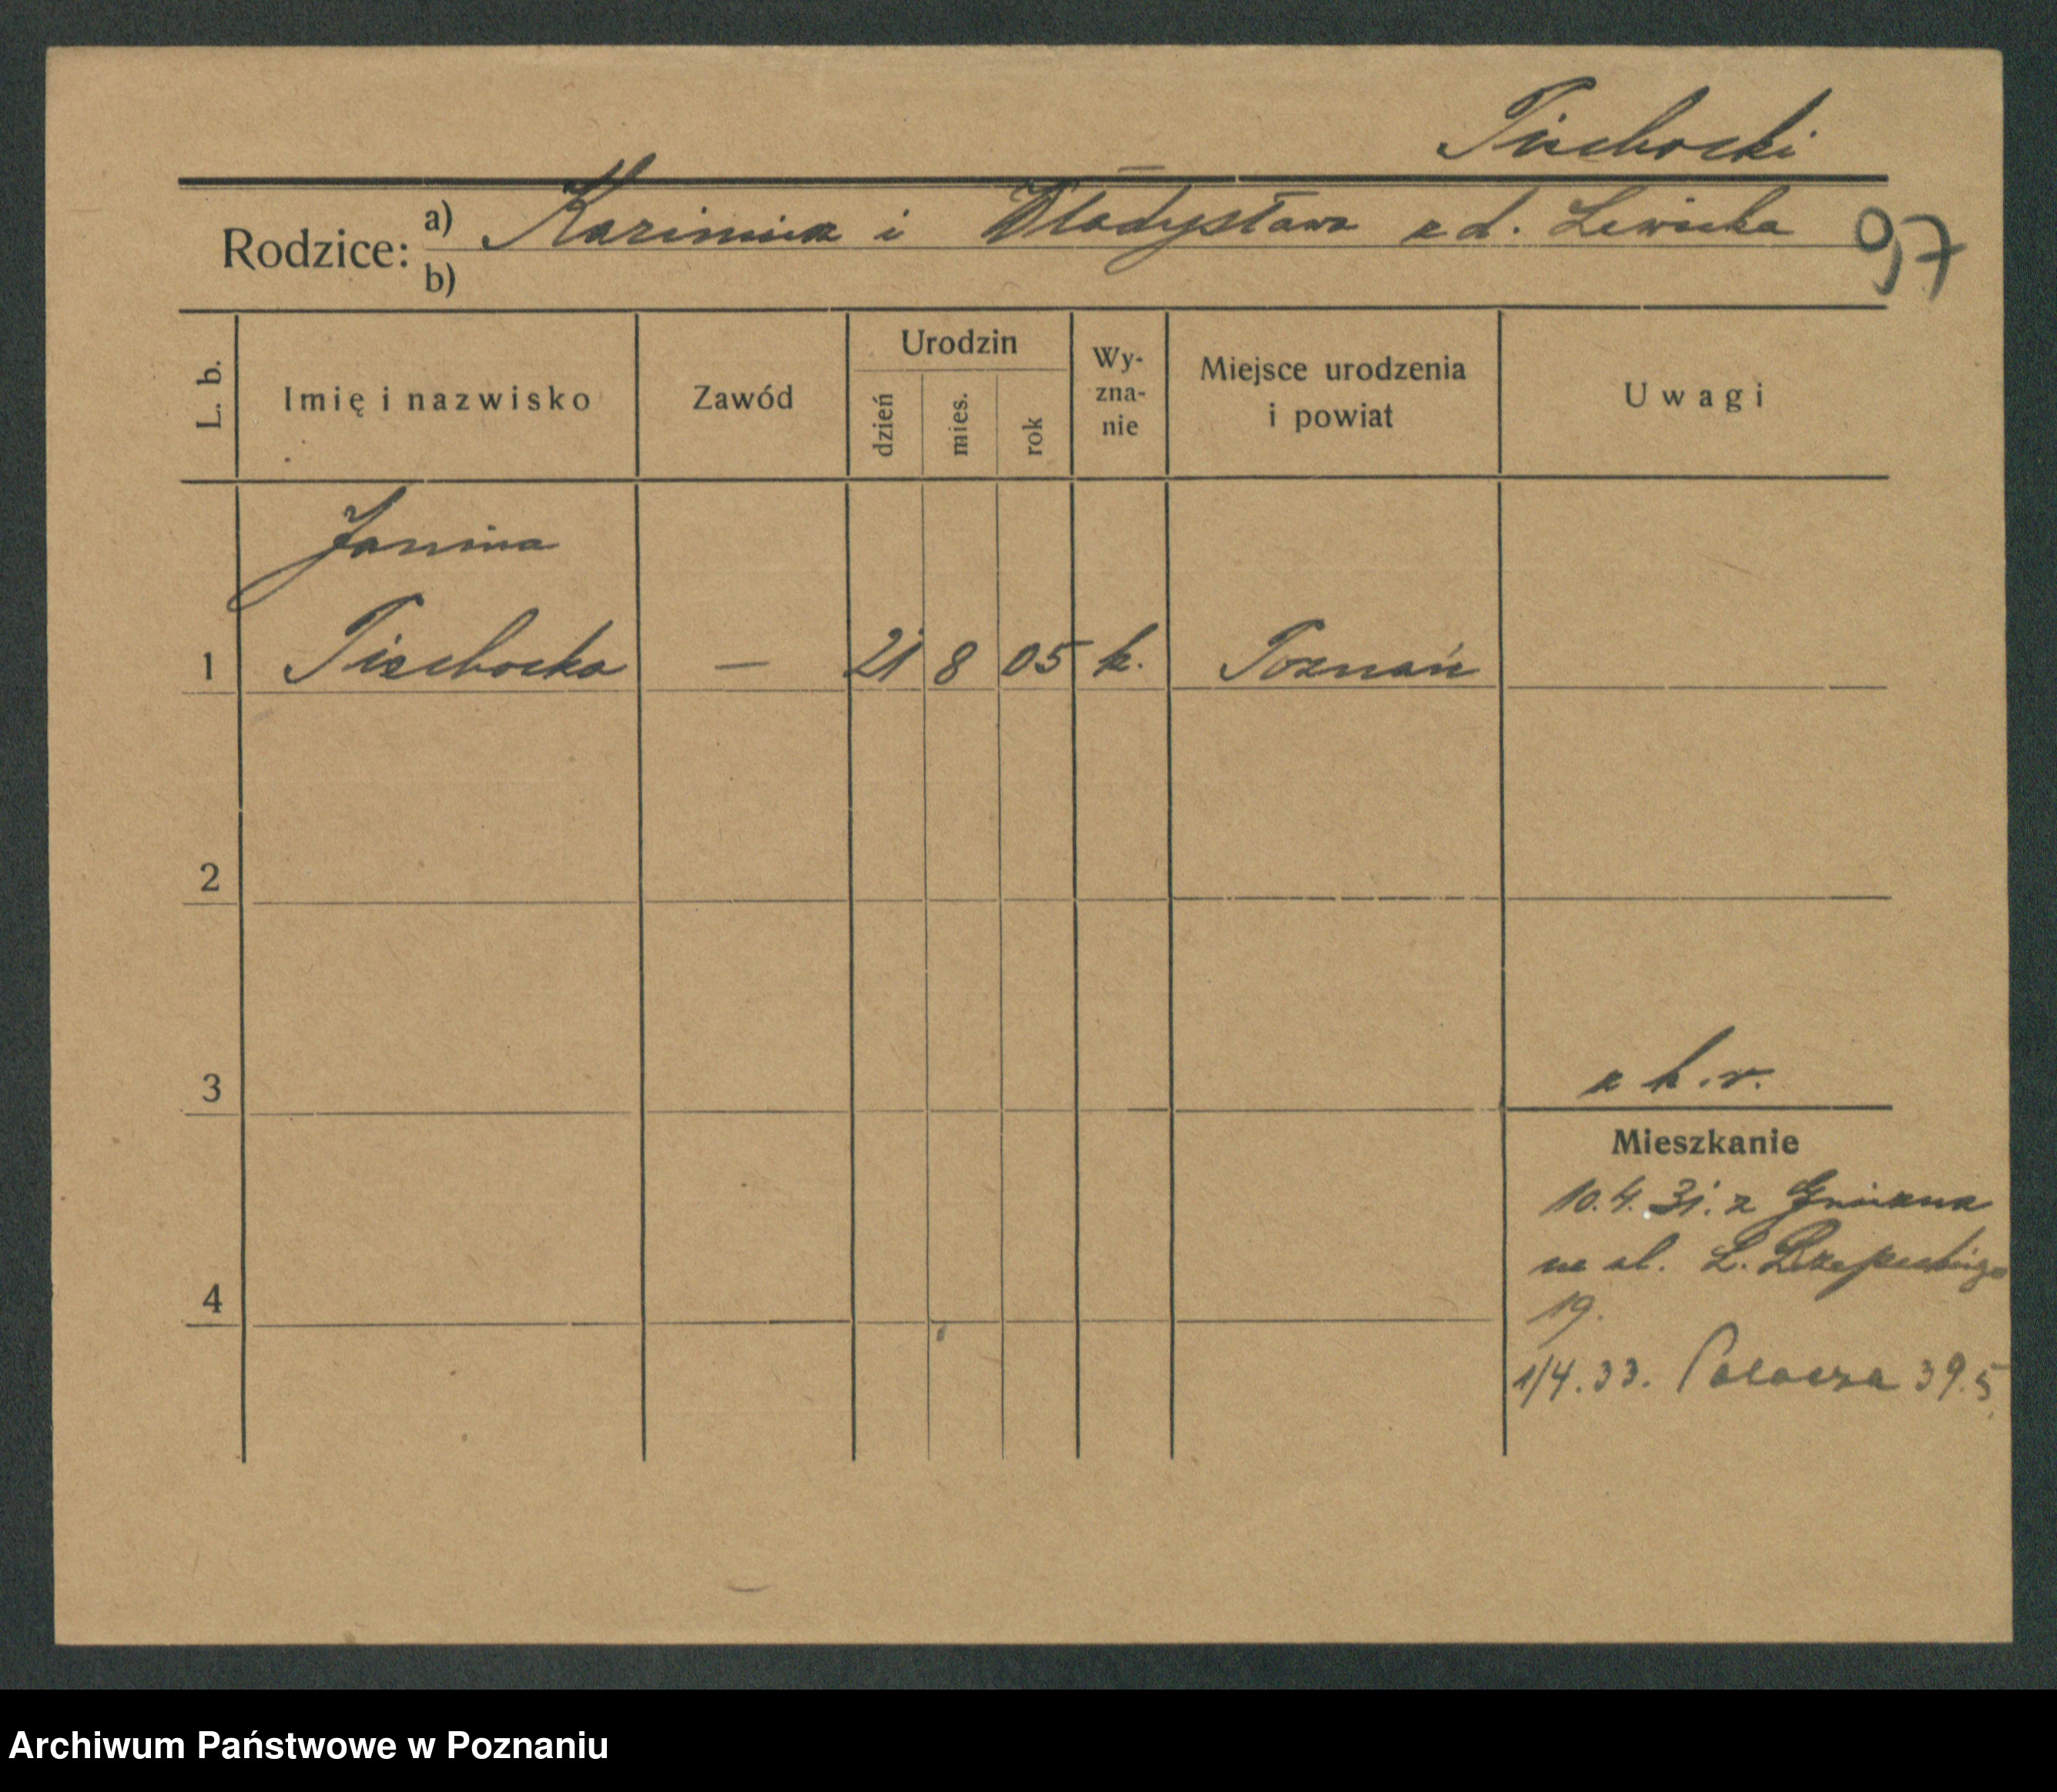 Piechocki
Rodzice: a) Kazimierz i Władysława z d. Lewicka
97
b)
L. b.
Imię i nazwisko
Zawód
Urodzin
dzień
mies.
rok
Wy-
zna-
nie
Miejsce urodzenia
i powiat
Uwagi
Janina
1 Piechocka — 21 8 05 k. Poznań
2
3
z k. r.
Mieszkanie
10.4.31. z Gniezna
na ul. L. Rzepeckiego
4
19.
1/4.33. Palacza 39.5
Archiwum Państwowe w Poznaniu